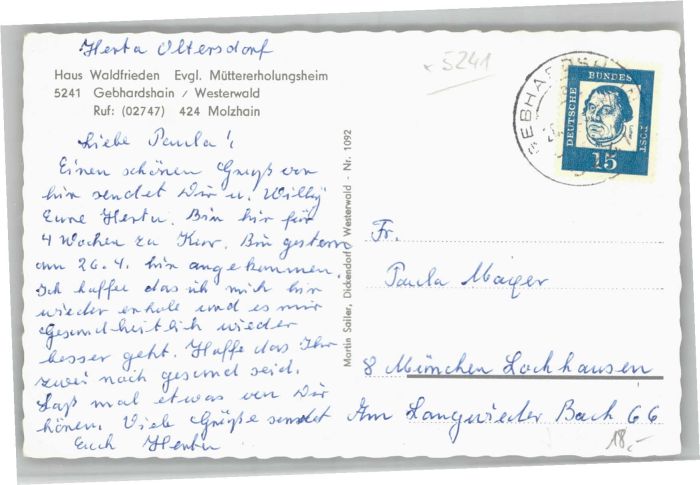 Herta Oltersdorf
Haus Waldfrieden Evgl. Müttererholungsheim
5241 Gebhardshain / Westerwald
Ruf: (02747) 424 Molzhain
Liebe Paula!
Einen schönen Gruß von
hir sendet Dir u. Willy
Eure Herta. Bin hir für
4 Wochen zu Kur. Bin gestern
am 26.4. hir angekommen.
Ich hoffe das ich mich hir
wieder erhole und es mir
Gesundheitlich wieder
besser geht. Hoffe das Ihr
zwei noch gesund seid.
Laß mal etwas von Dir
hören. Viele Grüße sendet
Euch Herta
Martin Sailer, Dickendorf / Westerwald - Nr. 1092
5241
GEBHARDSH
DEUTSCHE BUNDESPOST
15
Fr.
Paula Mayer
8 München Lochhausen
Am Langwieder Bach 66
18,-